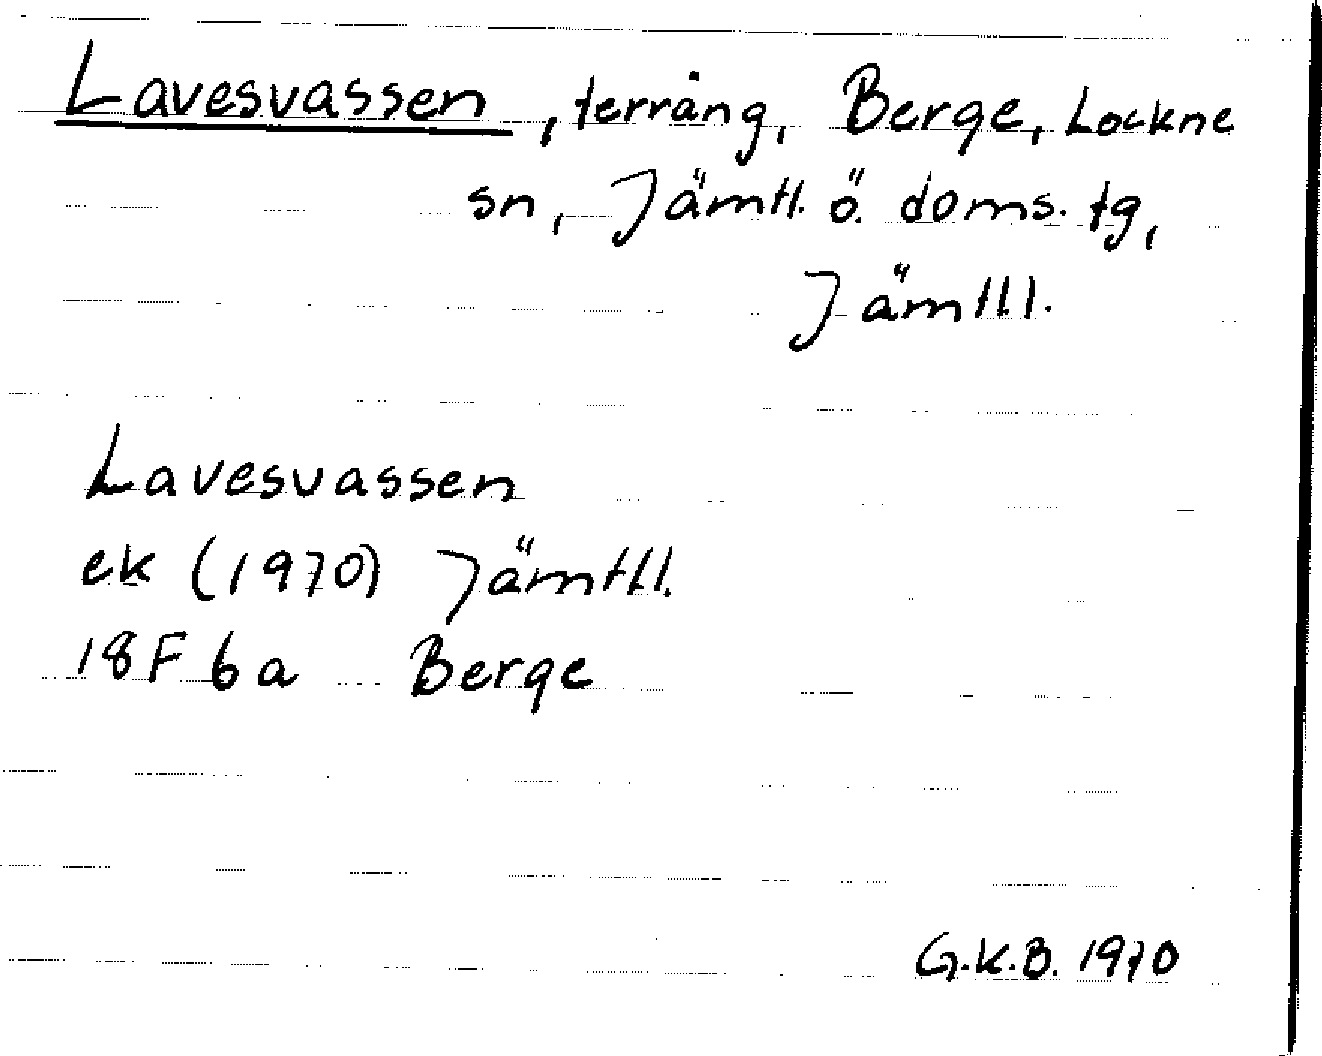 Lavesvassen, terräng, Berge, Lockne
sn, Jämtl. ö. doms. tg,
Jämtl l.
Lavesvassen
ek (1970) Jämtl l.
18F 6a Berge
G.K.B. 1970